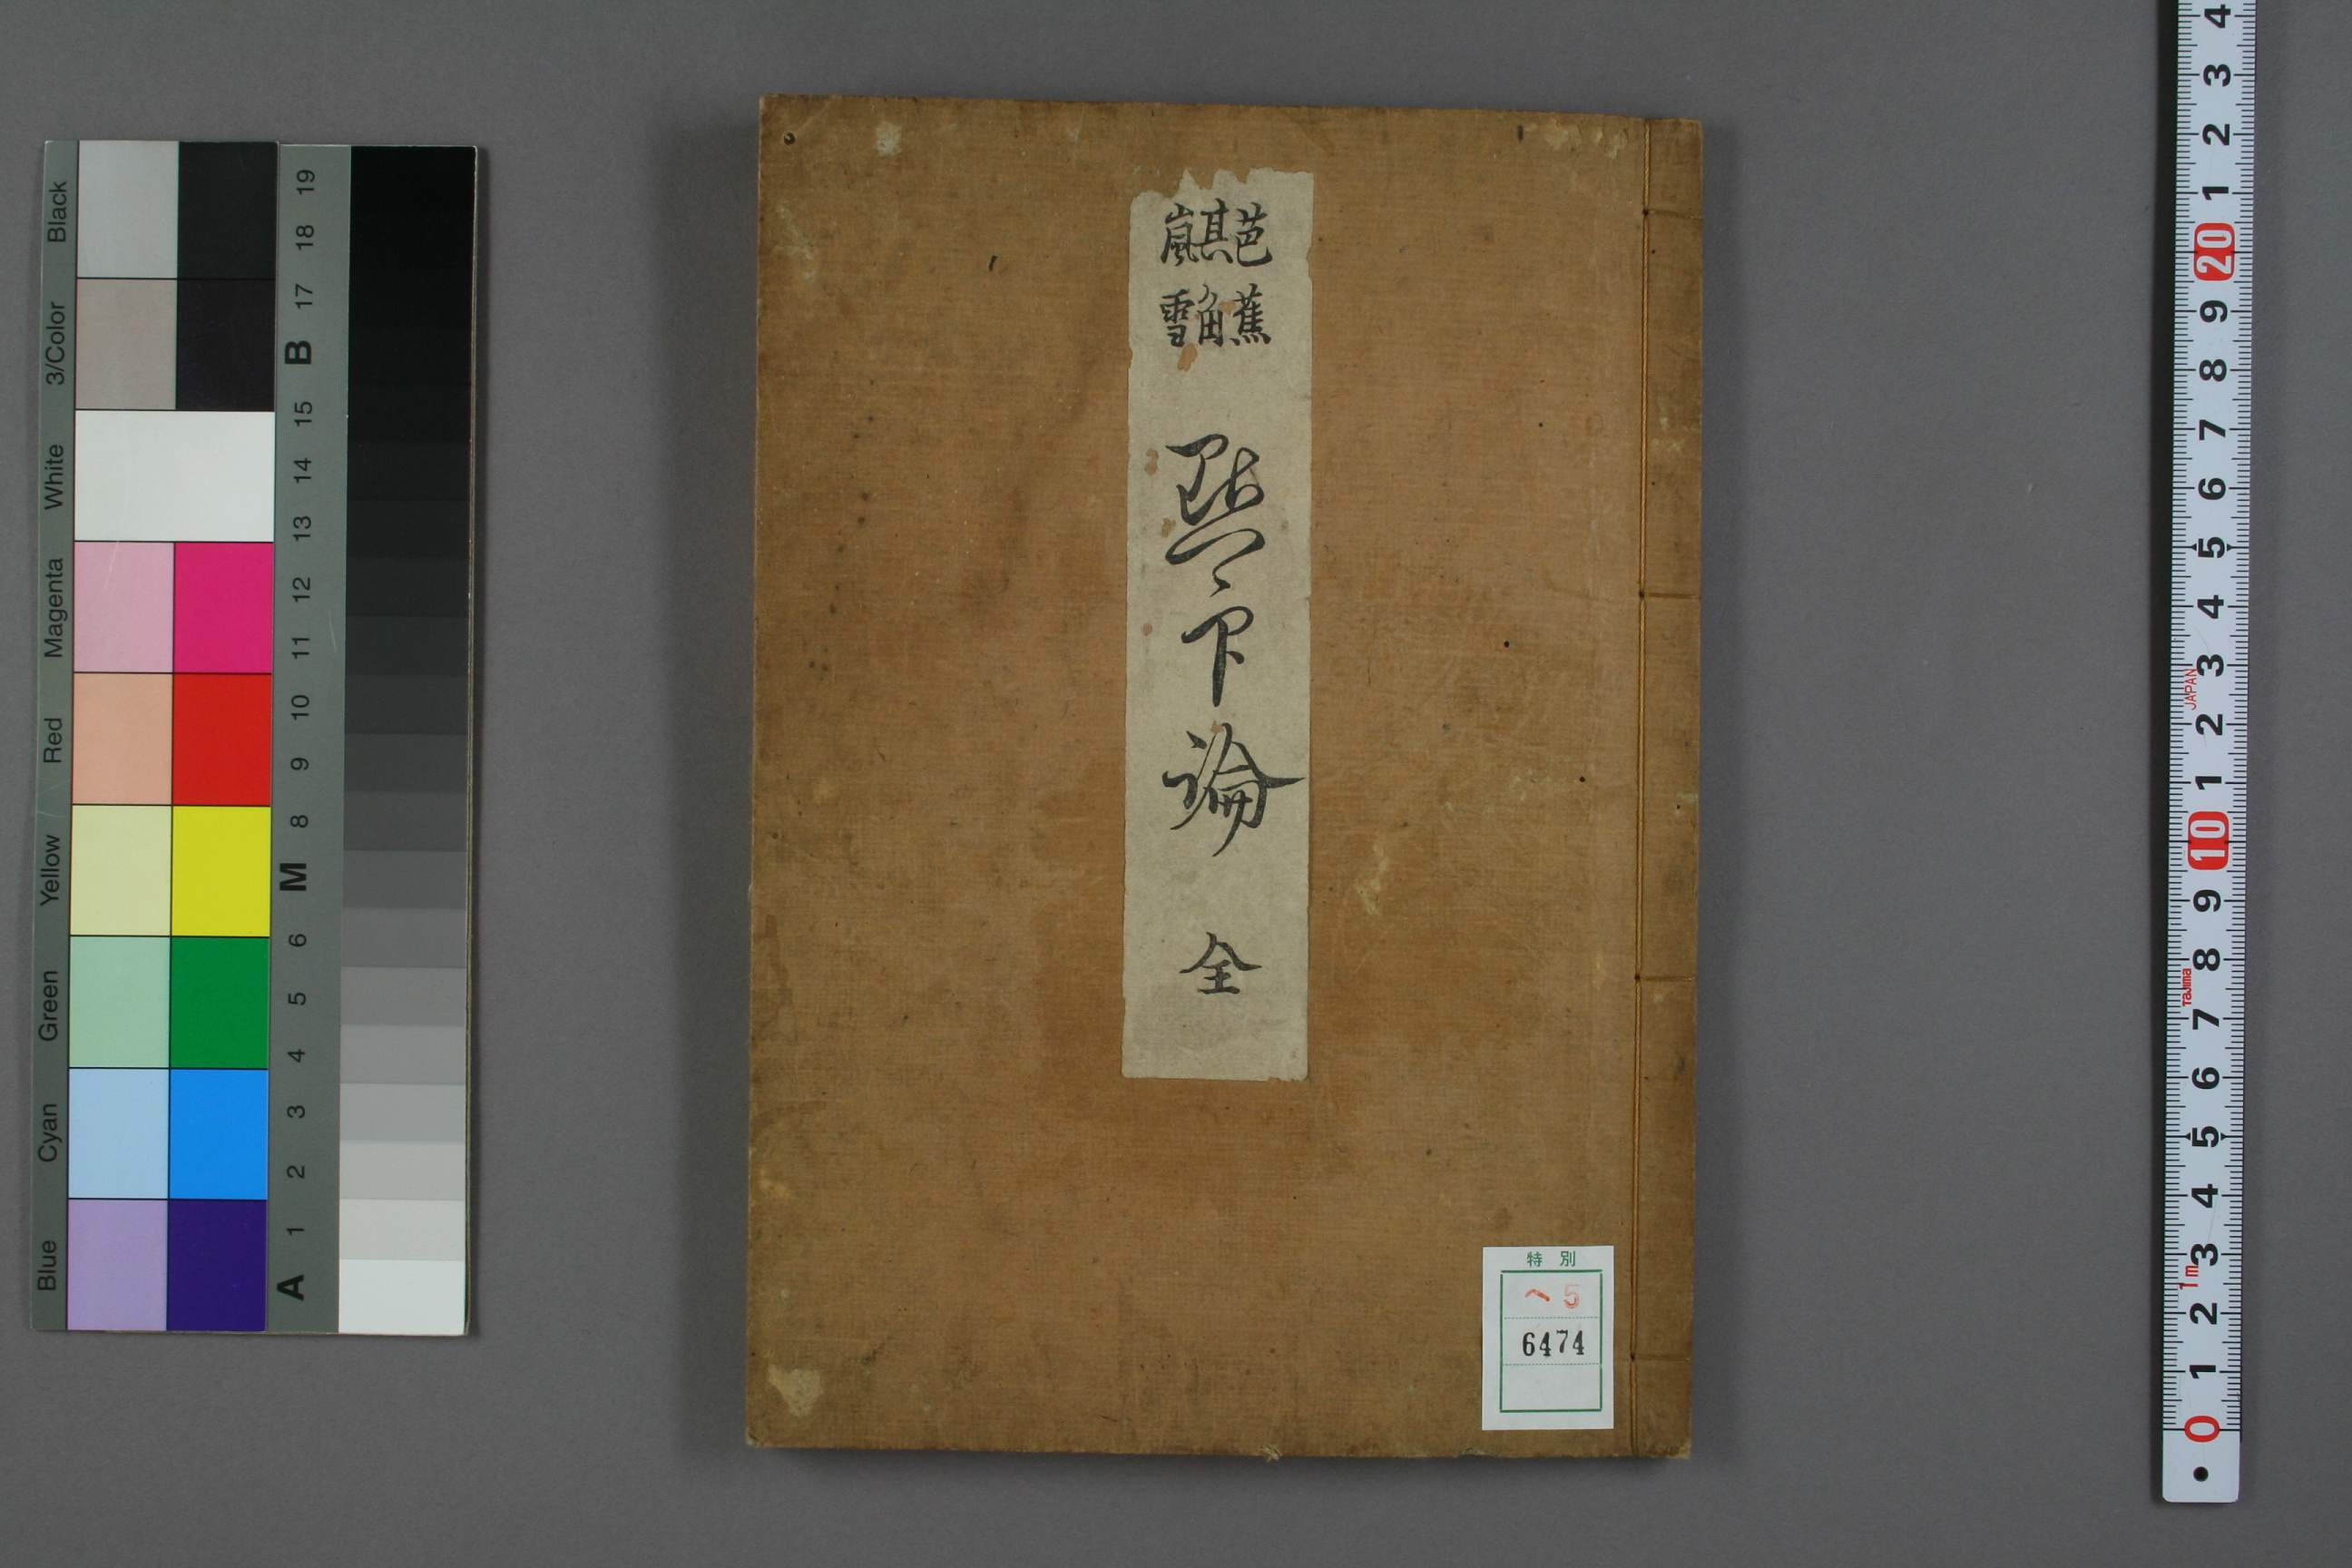 芭蕉
其角
嵐雪
點印論
全
特別
ヘ5
6474
Blue Cyan Green Yellow Red Magenta White 3/Color Black
A 1 2 3 4 5 6 M 8 9 10 11 12 13 14 15 B 17 18 19
0 1 2 3 4 5 6 7 8 9 10 1 2 3 4 5 6 7 8 9 20 1 2 3 4
1m
Tajima
JAPAN